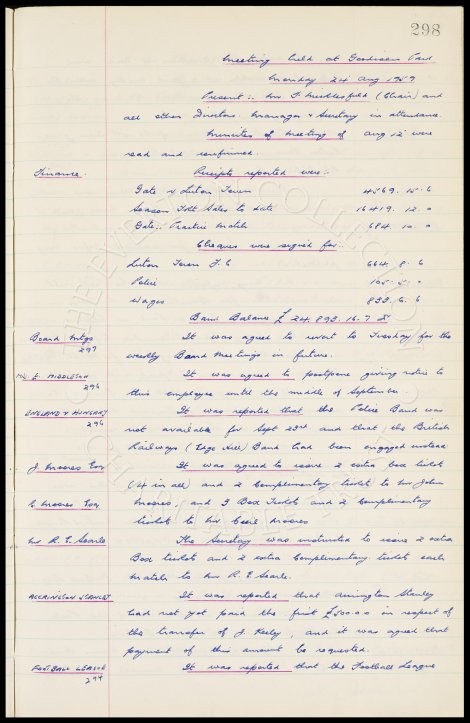 298
Meeting held at Goodison Park
Monday 24 Aug 1959
Present:- Mr F. Micklesfield (Chair) and
all other Directors. Manager & Secretary in attendance.
Minutes of Meeting of Aug 12 were
read and confirmed.
Finance. Receipts reported were:-
Gate v Luton Town 4569. 15. 6
Season Tckt Sales to date 16419. 12. 0
Gate:- Practice Match 684. 10. 0
Cheques were signed for:-
Luton Town F.C 664. 8. 6
Police 105. 5. 0
Wages 833. 6. 6
Bank Balance £ 24,893. 16. 7
Board Mtgs It was agreed to revert to Tuesday for the
297 weekly Board Meetings in future.
Mr. E. MIDDLETON It was agreed to postpone giving notice to
296 this employee until the middle of September.
ENGLAND v HUNGARY It was reported that the Police Band was
296 not available for Sept 23rd and that the British
Railways (Edge Hill) Band had been engaged instead
J. Moores Esq It was agreed to issue 2 extra box ticket
(4 in all) and 2 Complimentary ticket to Mr John
C. Moores Esq Moores, and 3 Box Tickets and 2 Complimentary
tickets to Mr Cecil Moores
Mr R. E. Searle The Secretary was instructed to issue 2 extra
Box tickets and 2 extra Complimentary tickets each
match to Mr R. E. Searle.
ACCRINGTON STANLEY It was reported that Accrington Stanley
had not yet paid the first £500.0.0 in respect of
the transfer of J. Keeley, and it was agreed that
payment of this amount be requested.
FOOTBALL LEAGUE It was reported that the Football League
294
THE EVERTON COLLECTION